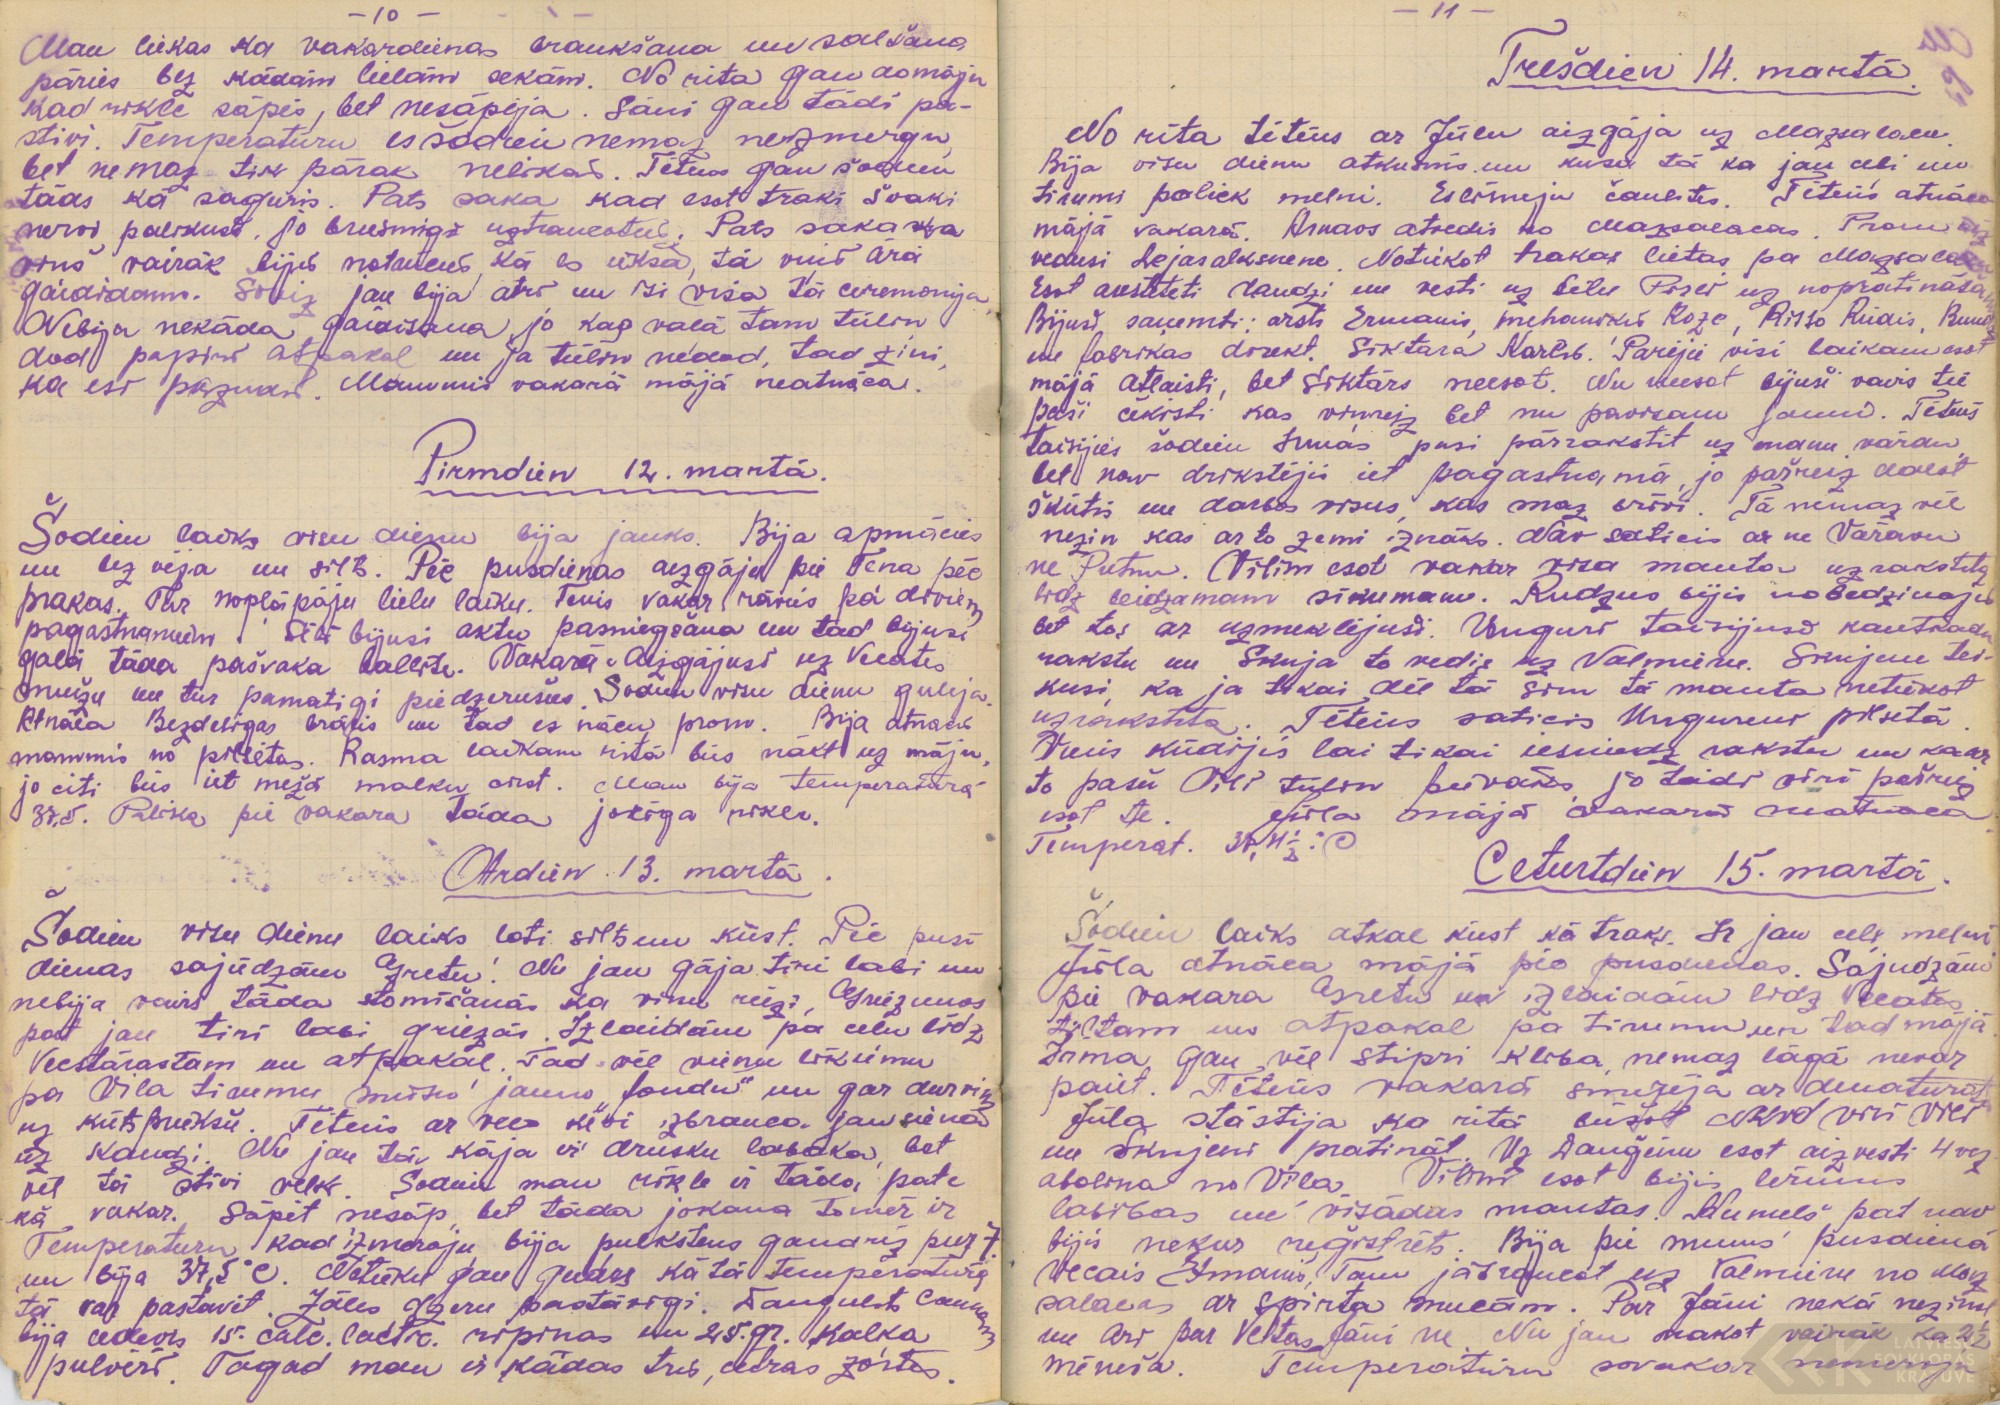 - 10 -
Man liekas ka vakardienas braukšana un salšana
pāries bez kādām lielām sekām. No rīta gan domāju
kad rīkle sāpēs, bet nesāpēja. Sāni gan tādi pa-
stīvi. Temperatūru es šodien nemaz neizmērīju,
bet nemaz tik pārāk nelikās. Tētiņš gan šodien
tāds kā saguris. Pats saka kad esot traki švaki
nervi palikuši, jo briesmīgi uztraucoties. Pats saka ka
viņš vairāk bijis noraizējies, kā es iekšā, tā viņš ārā
gaidīdams. jau bija ātri un īsi visa tā ceremonija
Nebija nekāda gaidīšana, jo kas vaļā tam tūliņ
dod papīri atpakaļ un ja tūliņ nedod, tad zini,
ka esi pazudis. Mammiņ vakarā mājā neatnāca.
Pirmdien 12. martā.
Šodien laiks visu dienu bija jauks. Bija apmācies
un bez vēja un silts. Pēc pusdienas aizgāju pie Tena pēc
prakas. Tur nopļāpāju lielu laiku. Tenis vakar nācis pa diviem
pagastnamiem. bijusi aktu pasniegšana un tad bijusi
galā tāda pašvaka ballīte. Vakarā aizgājuši uz Vecates
muižu un tur pamatīgi piedzērušies. Šodien visu dienu gulēja.
Atnāca Bezdelīgas brālis un tad es nācu prom. Bija atnākusi
mammiņ no pilsētas. Rasma laikam rītā būs nākt uz māju,
jo citi būs iet mežā malku cirst. Man bija temperatūra
37,5. Palika pie vakara tāda jokīga rīkle.
Otrdien 13. martā.
Šodien visu dienu laiks ļoti silts un kūst. Pēc pus-
dienas sajūdzām Gretu! Nu jau gāja tīri labi un
nebija vairs tāda stomīšanās ka viņu reizi, Griežamos
pat jau tīri labi griežas. Izlaidām pa ceļu līdz
Vecstārastam un atpakaļ. Tad vēl vienu līkumu
pa Viļa tīrumu mūsu jauno „fondu" un gar durvīm
uz kūtspriekšu. Tētiņš ar veco ķēvi izbrauca jau sienā
uz kaudzi. Nu jau tai kāja ir drusku labāka, bet
vēl tā stīvi velk. Šodien man rīkle ir tāda pate
kā vakar. Sāpēt nesāp, bet tāda jokaina tomēr ir
Temperatūru kad izmērīju bija pulkstens gandrīz pus 7.
un bija 37,5°C. Netieku gan gudrs kā tā temperatūra
tā var pastāvēt. Zāles dzeru pastāvīgi. Daugults Cauņam
bija iedevis 15. calc. lactic. ripiņas un 25. gr. kalka
pulveri. Tagad man ir kādas trīs, četras zortes.
- 11 -
Trešdien 14. martā.
No rīta tētiņš ar Jūlu aizgāja uz Mazsalacu.
Bija visu dienu atkusnis un kusa tā ka jau ceļi un
tīrumi paliek melni. Eslīmēju čaulītes. Tētiņš atnāca
mājā vakarā. Arnavs atvedis no Mazsalacas. Prom aiz-
vedusi Lejasalksnene. Notiekot trakas lietas pa Mazsalacu
Esot arestēti daudzi un vesti uz Sēlu Pīsei uz nopratināšanu
Bijuši saņemti: ārsts Ermanis, mehāniķis Koze, Riško Rūdis,
un fabrikas direkt. Siktāra Karlsb. Pārējie visi laikam esot
mājā atlaisti, bet Siktārs neesot. Nu neesot bijuši vairs tie
paši čekisti kas viņreiz bet nu pavisam jauni. Tētiņš
taisījies šodien Irmas pusi pārrakstīt uz manu vārdu,
bet nav drīkstējis iet pagastnamā, jo pašreiz dodot
šķūtīs un darbos visus, kas maz brīvi. Tā nemaz vēl
nezin kas ar to zemi iznāks. Nav saticis ar ne Vārāvu
ne Putnu. Vīlim esot vakar visa manta uzrakstīta
līdz beidzamam sīkumam. Rudzus bijis nobēdzinājis
bet tos ar uzmeklējuši. Unguri taisījuši kautkādu
rakstu un Skuja to vedis uz Valmieru. Skujene tei-
kusi, ka ja tikai dēļ tā tā manta netiekot
uzrakstīta. Tētiņš saticis Ungureni pilsētā.
Viņš kūdījis lai tikai iesniedz rakstu un ka ar
to pašu Vīli tūliņ jo tādi vīri pašreiz
esot te. Jūla mājā vakarā neatnāca.
Temperat. 37,4½ °C
Ceturtdien 15. martā.
Šodien laiks atkal kūst kā traks. Ir jau ceļi melni
Jūla atnāca mājā pēc pusdienas. Sajūdzām
pie vakara Gretu un izlaidām līdz Vecates
tiltam un atpakaļ pa tīrumu un tad mājā
Irma gan vēl stipri klibo, nemaz lāgā nevar
paiet. Tētiņš vakarā smērēja ar denaturātu
Jūla stāstīja ka rītā būšot NKVD vīri Vīli
un Skujeni pratināt. Uz Daugēnu esot aizvesti 4 vez.
āboliņa no Viļa. Vīlim esot bijis lērums
labības un visādas mantas. Numels pat nav
bijis nekur reģistrēts. Bija pie mums pusdienā
vecais Ermanis. Tam jābraucot uz Valmieru no Maz-
salacas ar spirta mucām. Par Jāni nekā nezinot
un arī par Veltas Jāni ne. Nu jau nākot vairāk ka 2½
mēneša. Temperatūru šovakar nemērīju